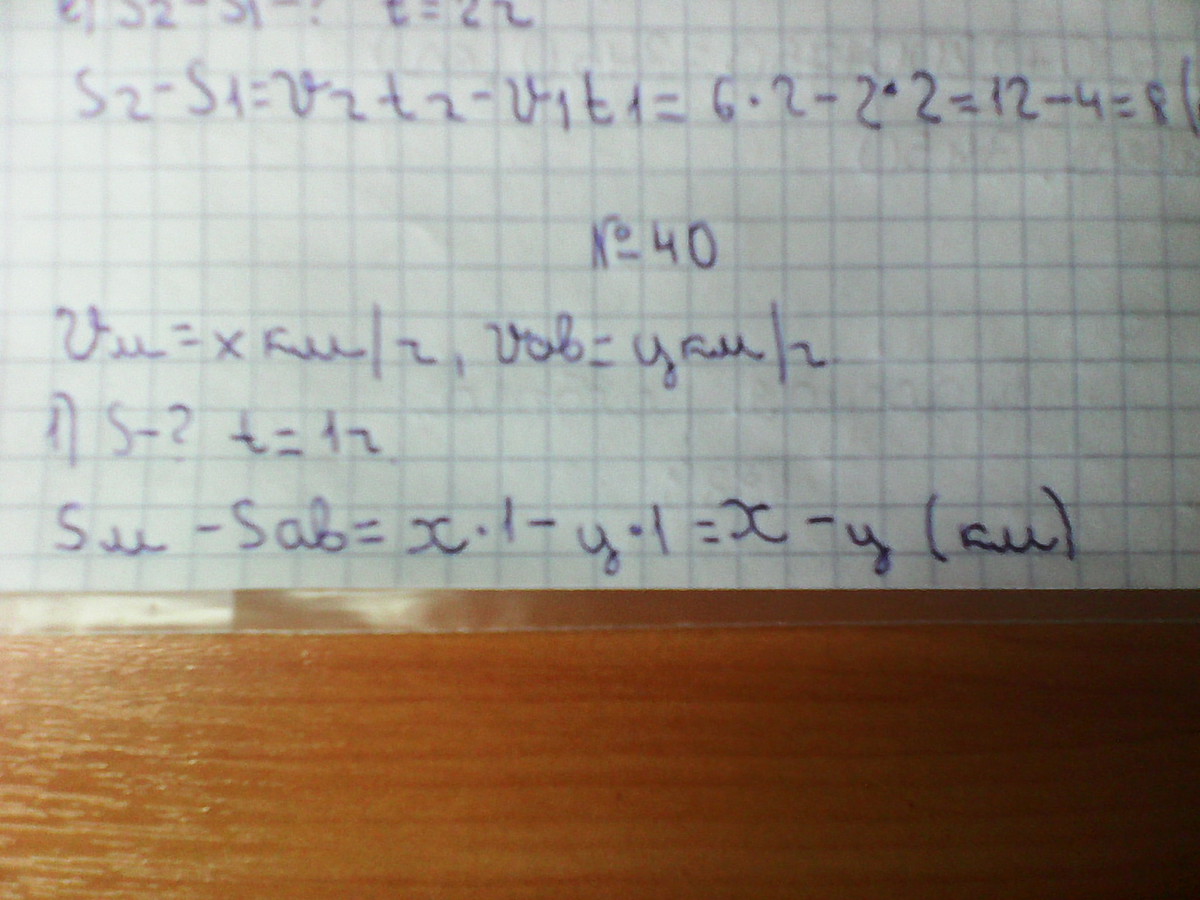 S2-S1-? t=2ч
S2-S1=V2t2-V1t1=6·2-2·2=12-4=8(
№40
Vм=x км/ч, Vав=y км/ч
1) S-? t=1ч.
Sм-Sав=x·1-y·1=x-y (км)